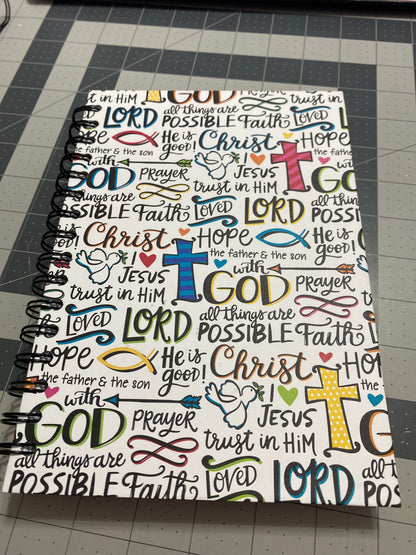 GOD Prayer trust in HiM
LORD all things are POSSIBLE Faith Loved
Hope He is good! Christ Hope
the father & the son I ♥ JESUS the father & the son
with prayer trust in HiM with GOD
POSSIBLE Faith Loved LORD all things are POSSIBLE
Christ Hope He is good!
I ♥ JESUS the father & the son
trust in HiM with GOD prayer
Loved LORD all things are POSSIBLE Faith
Hope He is good! Christ Hope
the father & the son I ♥ JESUS
with GOD prayer trust in HiM with GOD
all things are POSSIBLE Faith Loved LORD all things are POSSIBLE